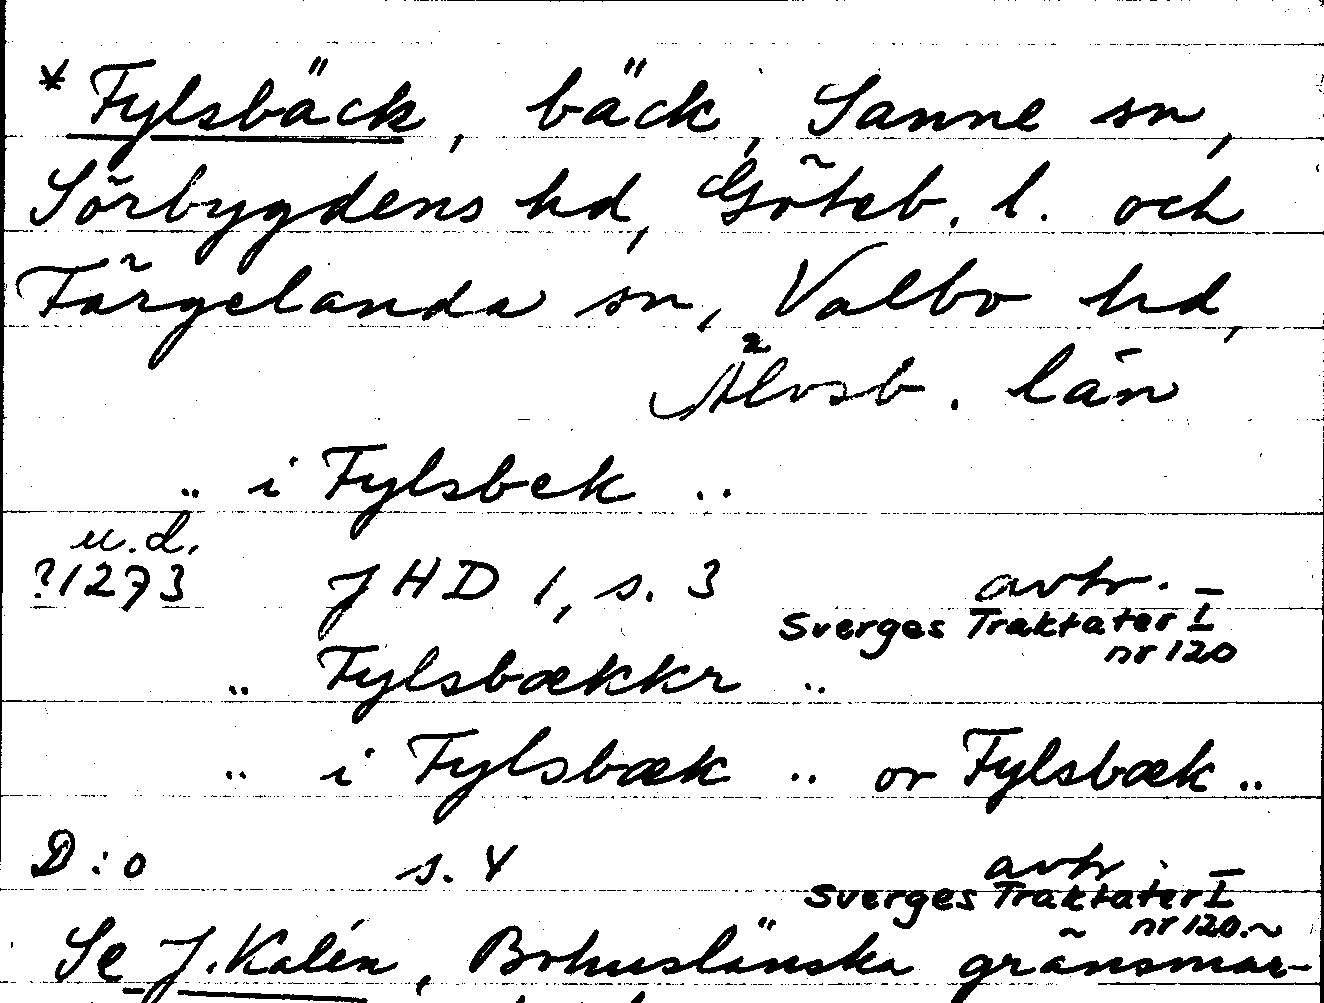 * Fylsbäck, bäck, Sanne sn,
Sörbygdens hd, Göteb. l. och
Färgelanda sn, Valbo hd,
Älvsb. län
.. i Fylsbek ..
u.d.
?1273 JHD 1, s. 3 avtr.
Sverges Traktater I
nr 120
.. Fylsbækkr ..
.. i Fylsbæk .. or Fylsbæk ..
D:o s. 4 avtr.
Sverges Traktater I
nr 120.
Se J. Kalén, Bohuslänska gränsmär-